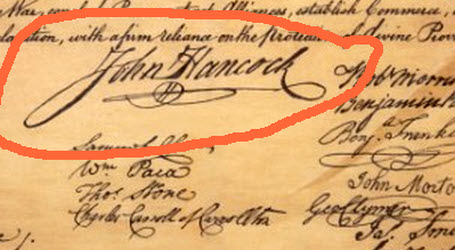 War, conclude Peace, contract Alliances, establish Commerce,
with a firm reliance on the Protection of divine Prov
John Hancock
Robt Morris
Benjamin
Benja Frankl
Samuel
Wm Paca
Thos Stone
Charles Carroll of Carrollton
John Morto
Geo Clymer
Jas. Smi